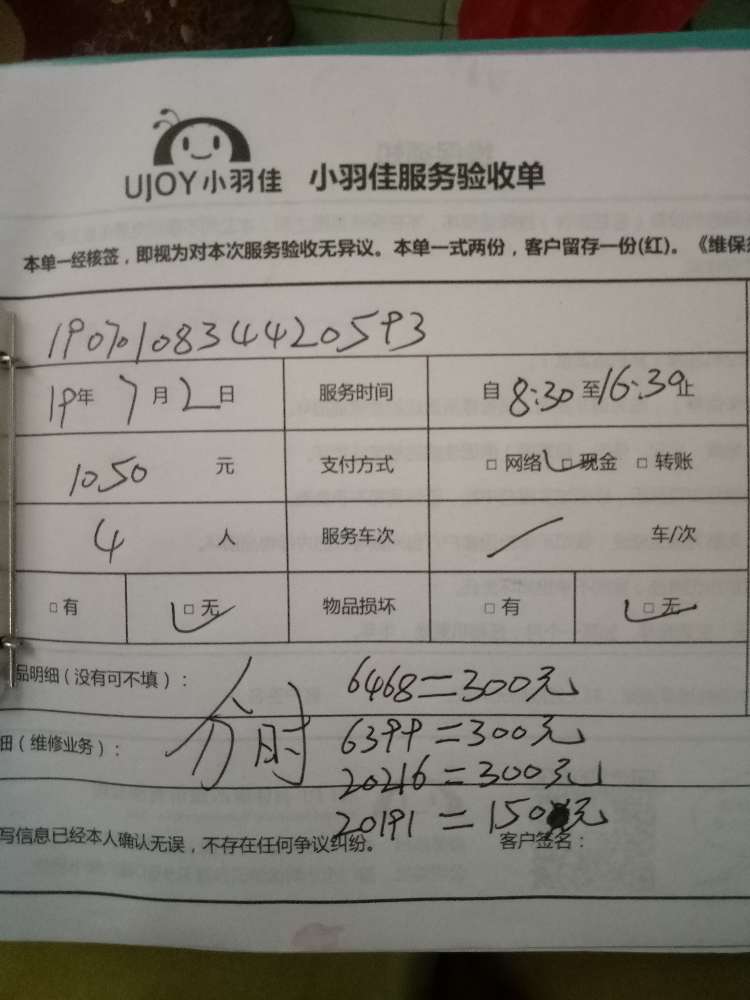 UJOY小羽佳 小羽佳服务验收单
本单一经核签，即视为对本次服务验收无异议。本单一式两份，客户留存一份(红)。《维保
1907010834420593
19年 7月2日 服务时间 自8:30至16:30止
1050 元 支付方式 □ 网络 □ 现金 □ 转账
4 人 服务车次 / 车/次
□ 有 □ 无 物品损坏 □ 有 □ 无
品明细（没有可不填）：
6468=300元
细（维修业务）：
分时
6399=300元
20216=300元
20191=150元
写信息已经本人确认无误，不存在任何争议纠纷。 客户签名：